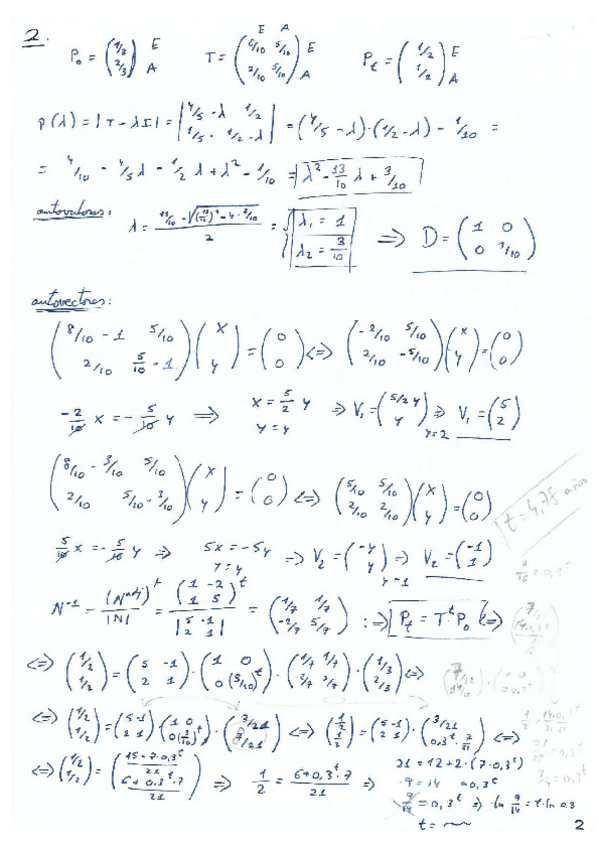 2.
P₀ = (1/3 ; 2/3) E A   T = (8/10 5/10 ; 2/10 5/10) E A   Pt = (1/2 ; 1/2) E A
p(λ) = |T - λI| = |4/5 - λ 1/2 ; 1/5 1/2 - λ| = (4/5 - λ)·(1/2 - λ) - 1/10 =
= 4/10 - 4/5 λ - 1/2 λ + λ² - 1/10 = λ² - 13/10 λ + 3/10
autovalores:
λ = 2 = { λ₁ = 1 ; λ₂ = 3/10 ⇒ D = (1 0 ; 0 3/10)
autovectores:
(8/10 - 1 5/10 ; 2/10 5/10 - 1)(x ; y) = (0 ; 0) ⇔ (-2/10 5/10 ; 2/10 -5/10)(x ; y) = (0 ; 0)
-2/10 x = -5/10 y ⇒ x = 5/2 y ; y = y ⇒ V₁ = (5/2 y ; y) ⇒ y=2 V₁ = (5 ; 2)
(8/10 - 3/10 5/10 ; 2/10 5/10 - 3/10)(x ; y) = (0 ; 0) ⇔ (5/10 5/10 ; 2/10 2/10)(x ; y) = (0 ; 0)
t = 4,78 años
5/10 x = -5/10 y ⇒ 5x = -5y ; y = y ⇒ V₂ = (-y ; y) ⇒ y=1 V₂ = (-1 ; 1)
N⁻¹ = (N^adj)^t / |N| = (1 -2 ; 1 5)^t / |5 -1 ; 2 1| = (1/7 1/7 ; -2/7 5/7) :⇒ Pt = T^t P₀ ⇔
⇔ (1/2 ; 1/2) = (5 -1 ; 2 1)·(1 0 ; 0 (3/10)^t)·(1/7 1/7 ; -2/7 5/7)·(1/3 ; 2/3) ⇔
⇔ (1/2 ; 1/2) = (5 -1 ; 2 1)(1 0 ; 0 (3/10)^t)·(3/21 ; 8/21) ⇔ (1/2 ; 1/2) = (5 -1 ; 2 1)·(3/21 ; 0,3^t · 7/21) ⇔
⇔ (1/2 ; 1/2) = (15 - 7·0,3^t / 21 ; 6 + 0,3^t·7 / 21) ⇒ 1/2 = 6+0,3^t·7 / 21 ⇒
21 = 12 + 2·(7·0,3^t)
9 = 14 · 0,3^t
9/14 = 0,3^t ⇒ ln 9/14 = t·ln 0,3
t =
2